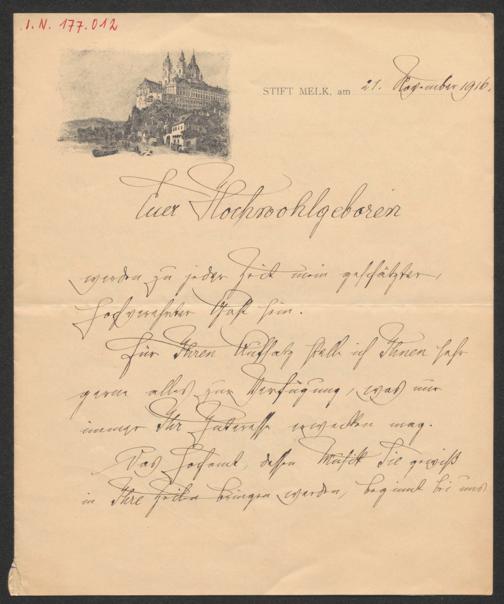 I. N. 177.012
STIFT MELK, am 21. November 1916.
Euer Hochwohlgeboren
werden zu jeder Zeit mein geschätzter,
hochverehrter Gast sein.
Für Ihren Aufsatz stelle ich Ihnen sehr
gerne alles zur Verfügung, was nur
immer Ihr Interesse erwecken mag.
Das Hochamt, dessen Musik Sie gewiß
in Ihre Zeilen bringen werden, beginnt bei uns